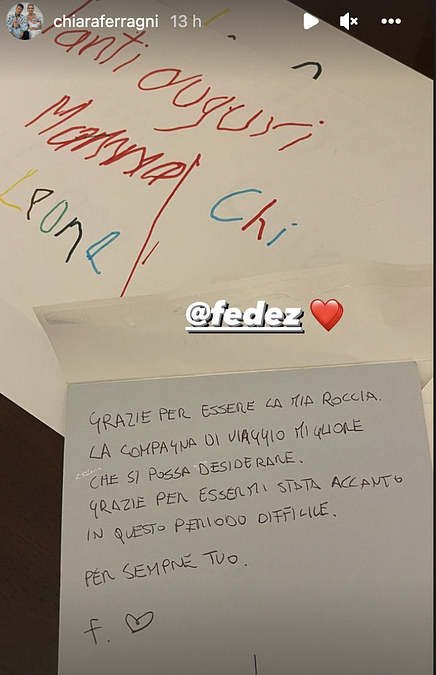 chiaraferragni 13 h
Tanti
auguri
Mamma
Leone
Chi
@fedez
GRAZIE PER ESSERE LA MIA ROCCIA.
LA COMPAGNA DI VIAGGIO MIGLIORE
CHE SI POSSA DESIDERARE.
GRAZIE PER ESSERMI STATA ACCANTO
IN QUESTO PERIODO DIFFICILE.
PER SEMPRE TUO.
F.